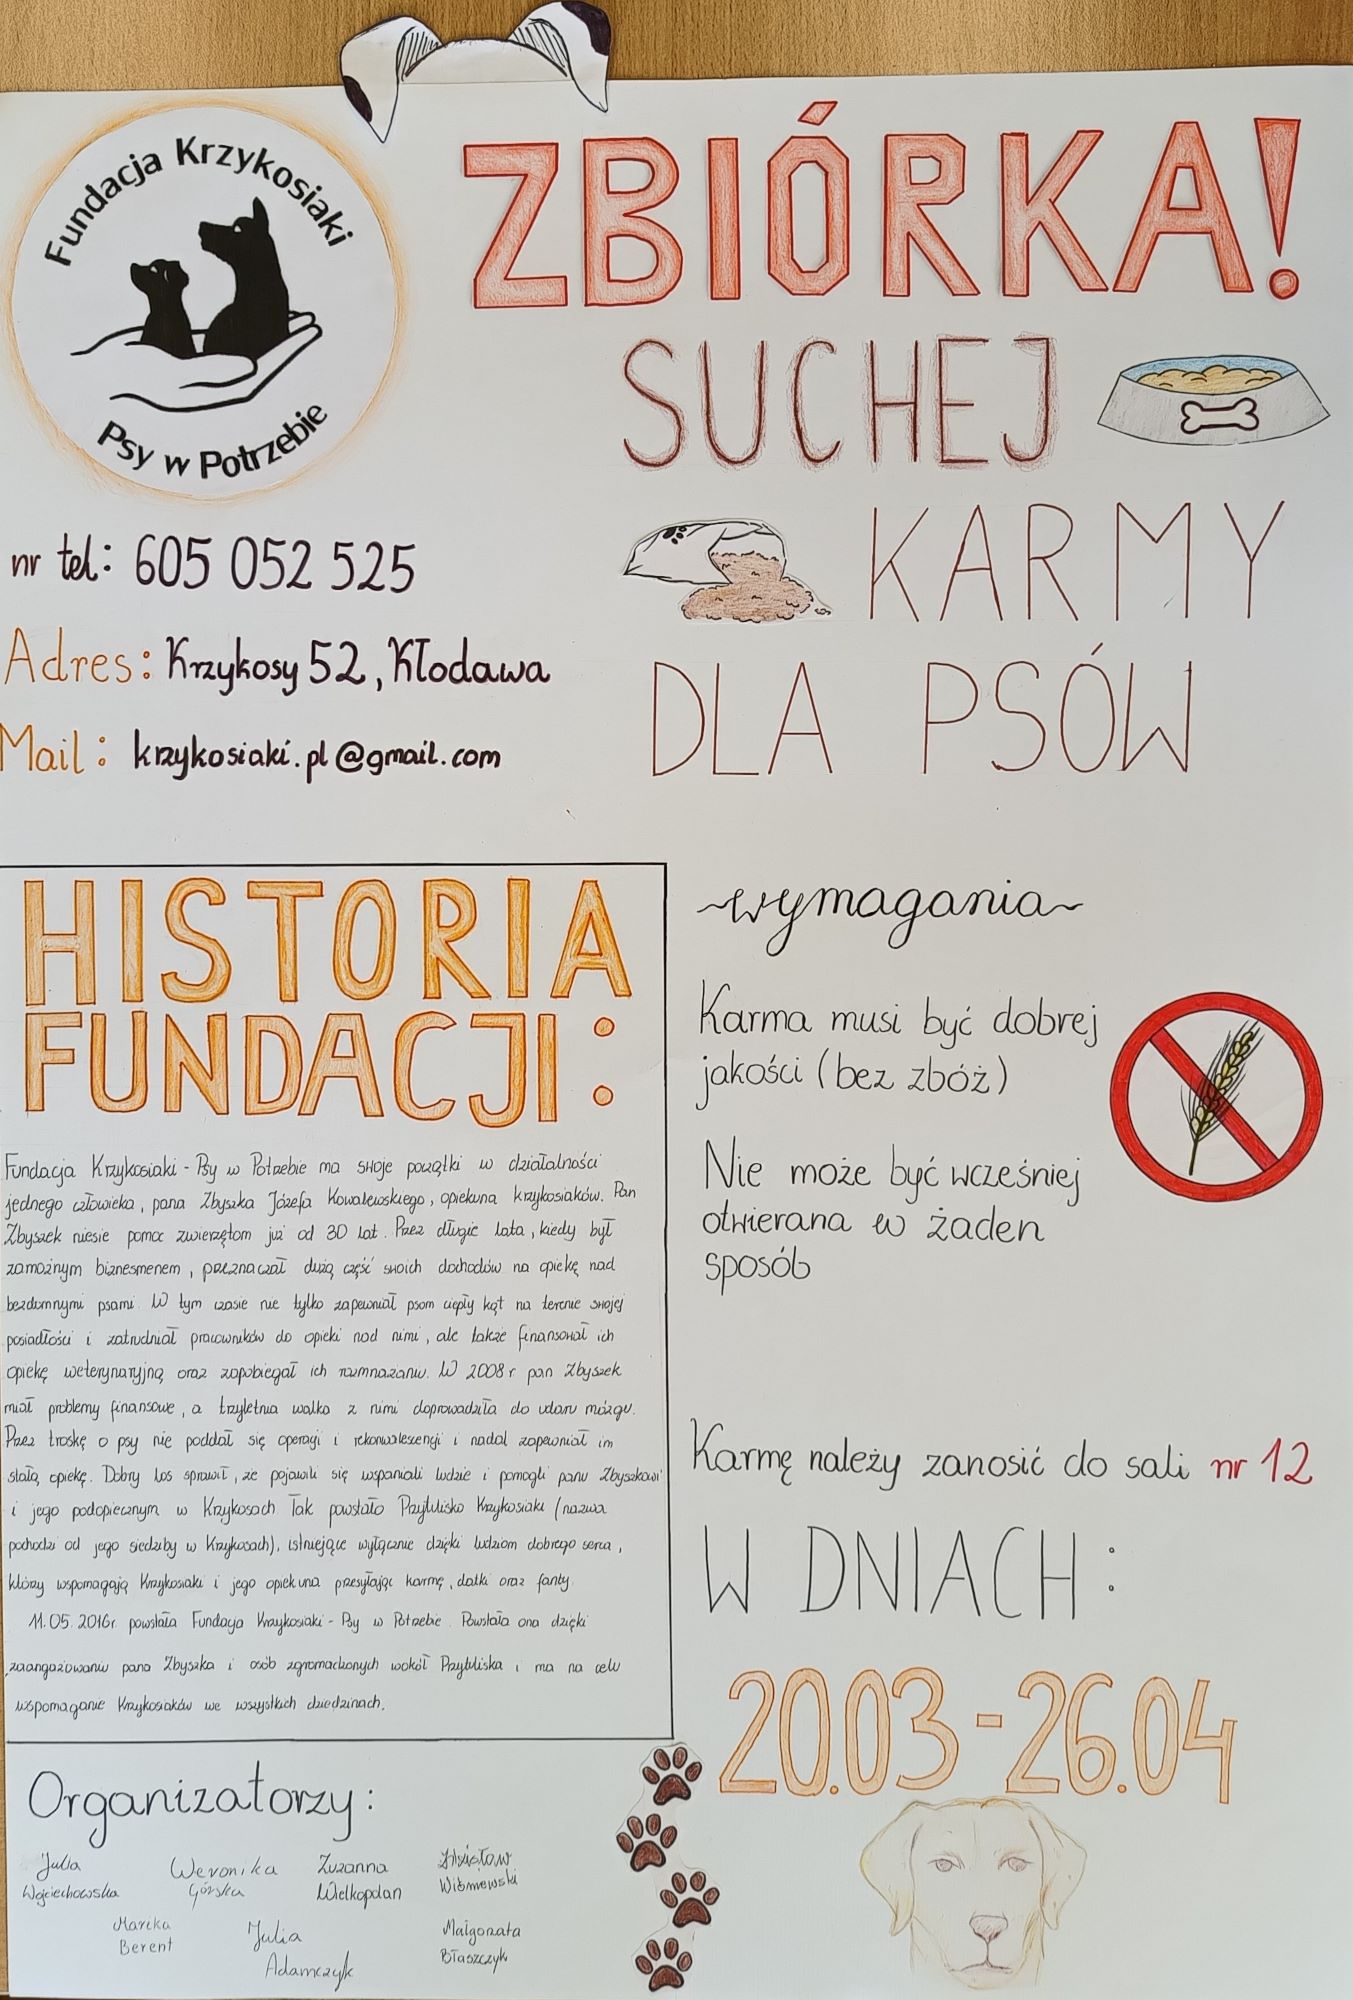 Fundacja Krzykosiaki
Psy w Potrzebie
ZBIÓRKA!
SUCHEJ
KARMY
DLA PSÓW
nr tel: 605 052 525
Adres: Krzykosy 52, Kłodawa
Mail: krzykosiaki.pl@gmail.com
HISTORIA
FUNDACJI:
Fundacja Krzykosiaki - Psy w Potrzebie ma swoje początki w działalności
jednego człowieka, pana Zbyszka Józefa Kowalewskiego, opiekuna krzykosiaków. Pan
Zbyszek niesie pomoc zwierzętom już od 30 lat. Przez długie lata, kiedy był
zamożnym biznesmenem, przeznaczał dużą część swoich dochodów na opiekę nad
bezdomnymi psami. W tym czasie nie tylko zapewniał psom ciepły kąt na terenie swojej
posiadłości i zatrudniał pracowników do opieki nad nimi, ale także finansował ich
opiekę weterynaryjną oraz zapobiegał ich rozmnażaniu. W 2008r. pan Zbyszek
miał problemy finansowe, a trzyletnia walka z nimi doprowadziła do udaru mózgu.
Przez troskę o psy nie poddał się operacji i rekonwalescencji i nadal zapewniał im
stałą opiekę. Dobry los sprawił, że pojawili się wspaniali ludzie i pomogli panu Zbyszkowi
i jego podopiecznym w Krzykosach Tak powstało Przytulisko Krzykosiaki (nazwa
pochodzi od jego siedziby w Krzykosach), istniejące wyłącznie dzięki ludziom dobrego serca,
którzy wspomagają Krzykosiaki i jego opiekuna przesyłając karmę, datki oraz fanty.
11.05.2016r. powstała Fundacja Krzykosiaki - Psy w Potrzebie. Powstała ona dzięki
zaangażowaniu pana Zbyszka i osób zgromadzonych wokół Przytuliska i ma na celu
wspomaganie Krzykosiaków we wszystkich dziedzinach.
wymagania
Karma musi być dobrej
jakości (bez zbóż)
Nie może być wcześniej
otwierana w żaden
sposób
Karmę należy zanosić do sali nr 12
W DNIACH:
20.03-26.04
Organizatorzy:
Julia
Wojciechowska
Weronika
Górska
Zuzanna
Wielkopolan
Zdzisław
Wiśniewski
Marika
Berent
Julia
Adamczyk
Małgorzata
Błaszczyk